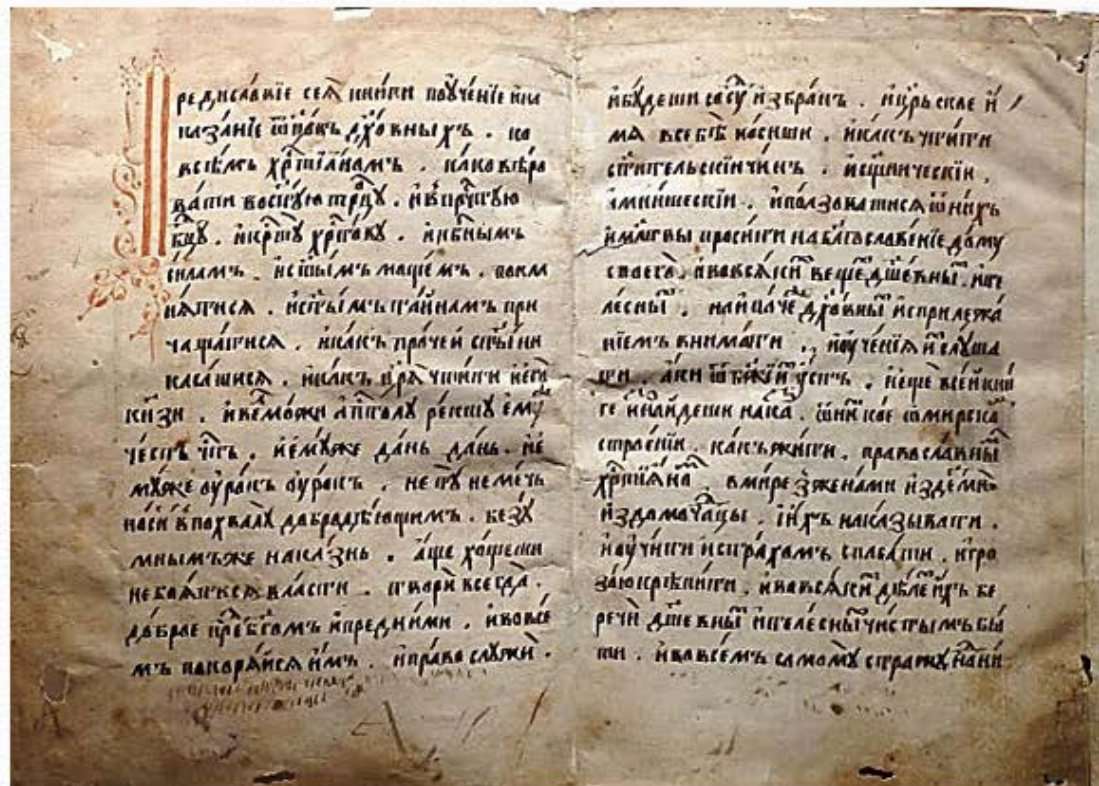 Предисловїе сеѧ книги поꙋченїе и на
казанїе ѿ ѿцъ дх҃овныхъ . ко
всѣмъ хрⷭ҇тїаномъ . како вѣро
вати во ст҃ꙋю трⷪ҇цꙋ . и в прⷱ҇тꙋю
бцⷣꙋ . и крⷭ҇тꙋ хрⷭ҇товꙋ . и нбⷭ҇нымъ
силамъ . и ст҃ымъ мощемъ . покла
нѧтисѧ . и ст҃ымъ таинамъ при
чащатисѧ . и какъ прочеи ст҃ыни
касатисѧ . и какъ цр҃ѧ чтити и его
кнѧзи . и велможи апⷭ҇толꙋ рекшꙋ емꙋже
честь чⷭ҇ть . и емꙋже дань дань . и е
мꙋже ꙋрокъ ꙋрокъ . не тꙋне мечь
носи в похвалꙋ добродѣющимъ . безꙋ
мнымъ же наказнь . аще хощеши
не боѧтисѧ власти . твори всегда .
доброе преⷣ бг҃омъ и пред ними . и во все
мъ покорѧисѧ имъ . и право слꙋжи .
и бꙋдеши сосꙋⷣ избранъ . и цр҃ьское и
мѧ в себѣ носиши . и какъ чтити
ст҃ительскїи чинъ . и сщ҃нническїи .
и мнишескїи . и ползоватисѧ ѿ нихъ
и мл҃твы просити на благословенїе домꙋ
своего . и во всѧкиⷯ вещеⷯ дш҃евныⷯ . и те
лесныⷯ . наипаче дх҃овныⷯ и с прилежа
нїемъ внимати . и ꙋченїѧ иⷯ слꙋша
ти . аки ѿ бж҃їиⷯ ꙋстъ . и еще в сеи кни
ге изнаидеши накаⷥ . ѿ некоеⷢ о мирскоⷨ
строении . какъ жити . православныⷨ
хрⷭ҇тїѧноⷨ . в мире з женами и з детми
и з домочатцы . и ихъ наказывати .
и ꙋчити и страхомъ спасати . и гро
зою крепити . и во всѧкиⷯ делеⷯ ихъ бе
речи дш҃евныⷯ и телесныⷯ чистымъ бы
ти . и во всемъ самомꙋ стражꙋ наⷣ ни